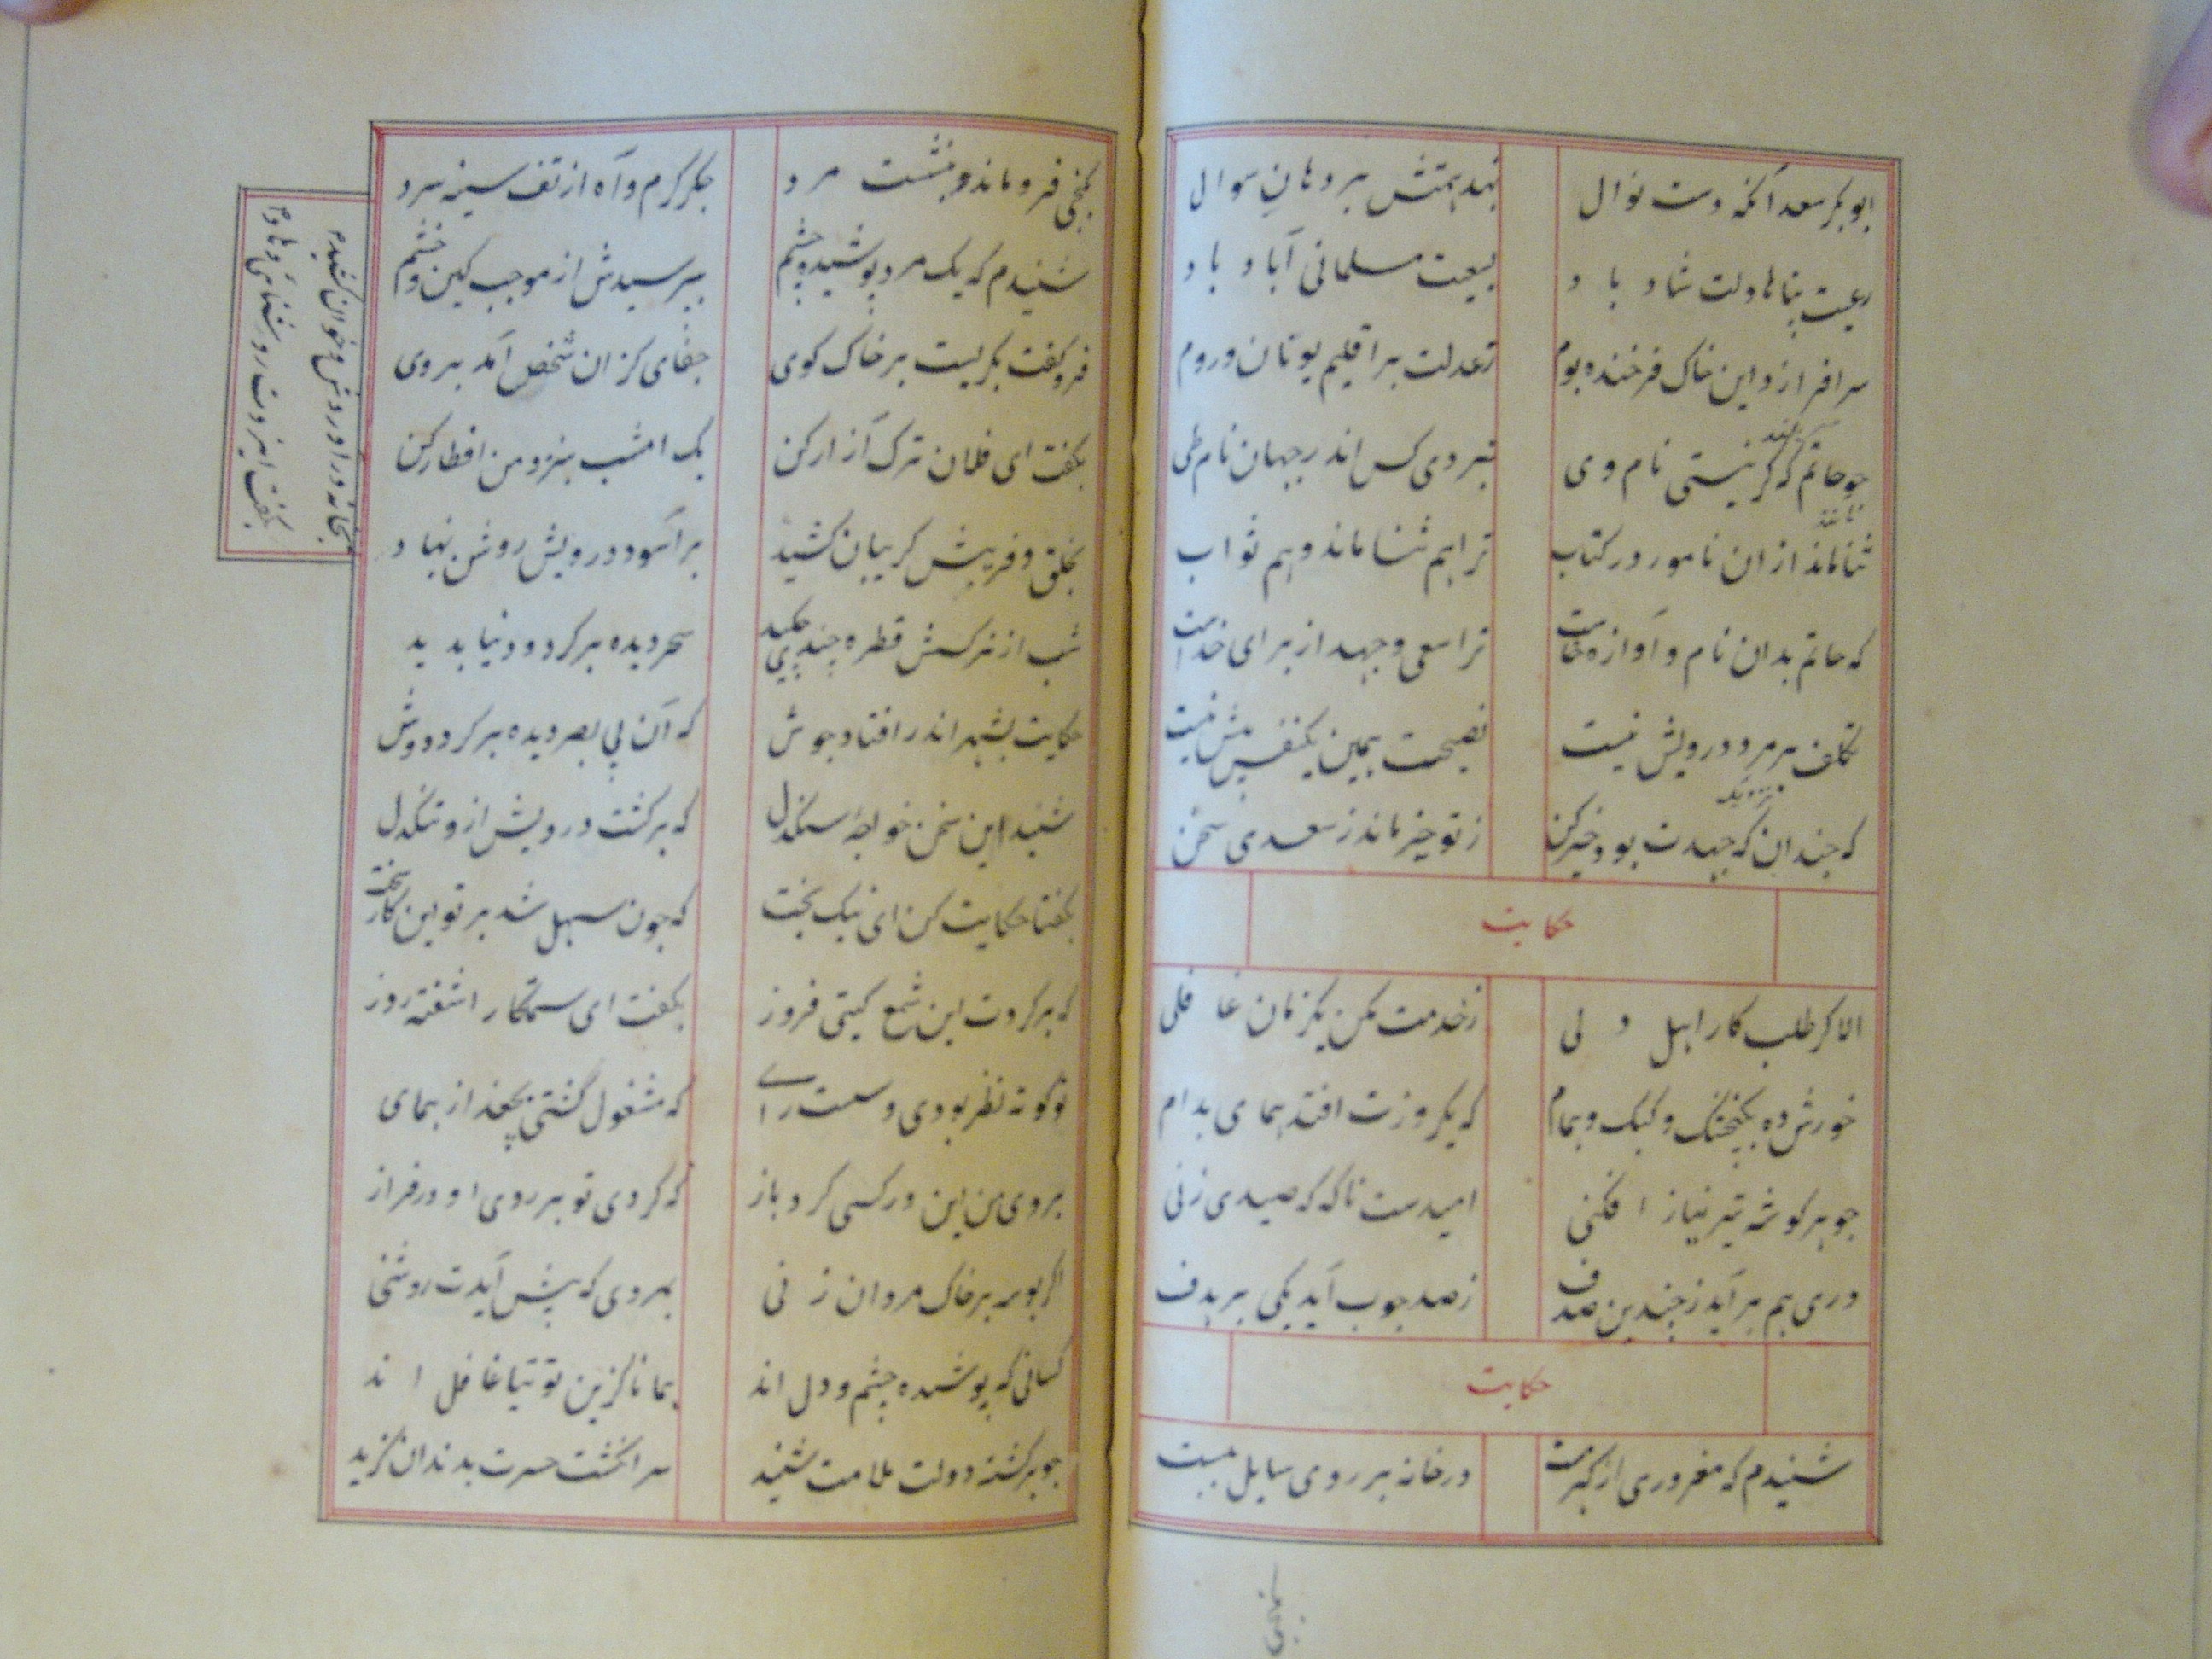 ابوبکر سعد آنکه دست نوال نهد همتش بر دهان سوال
رعیت پناها دولت شاد باد بسعیت مسلمانی آباد باد
سرافرازد این خاک فرخنده بوم ز عدلت بر اقلیم یونان و روم
جو حاتم که گر نیستی نام وی نبردی کس اندر جهان نام طی
ثنا ماند ازان نامور در کتاب ترا هم ثنا ماند و هم ثواب
که حاتم بدان نام و آوازه خواست ترا سعی و جهد از برای خداست
تکلف بر مرد درویش نیست نصیحت همین یکنفس بیش نیست
که جندان که جهدت بود خیر کن ز تو خیر ماند ز سعدی سخن
حکایت
الا کر طلب کار اهل دلی ز خدمت مکن یکزمان غافلی
خورش ده بکنجشک و کبک و حمام که یکروزت افتد همای بدام
جو هر کوشه تیر نیاز افکنی امیدست ناکه که صیدی زنی
دری هم بر آید ز جندین صدف ز صد جوبه آید یکی بر هدف
حکایت
شنیدم که مغروری از کبر مست در خانه بر روی سایل ببست
بکنجی فرو ماند و بنشست مرد جکر کرم و آه از تف سینه سرد
شنیدم که یک مرد پوشیده چشم بپرسیدش از موجب کین و خشم
فرو کفت بکریست بر خاک کوی جفای کزان شخص آمد بروی
بکفت ای فلان ترک آزار کن یک امشب بنزد من افطار کن
بخلق و فریبش کریبان کشید
بخانه در آوردش و خوان کشید
بر آسود درویش روشن نهاد
بکفت ایزدت روشنائی دهاد
شب از نرکسش قطره چند چکید سحر دیده بر کرد و دنیا بدید
حکایت بشهر اندر افتاد جوش که آن بی بصر دیده بر کرد دوش
شنید این سخن خواجه سنکدل که برکشت درویش ازو تنکدل
بکفتا حکایت کن ای نیک بخت که جون سهل شد بر تو این کار سخت
که بر کردت این شمع کیتی فروز بکفت ای ستمکار اشفته روز
تو کوته نظر بودی و سست رای که مشغول کشتی بجغد از همای
بروی من این در کسی کرد باز که کردی تو بر روی او در فراز
اکر بوسه بر خاک مردان زنی بمردی که پیش آیدت روشنی
کسانی که پوشیده چشم و دل اند همانا کزین توتیا غافل اند
جو برکشته دولت ملامت شنید سر انکشت حسرت بدندان کزید
بکنجی